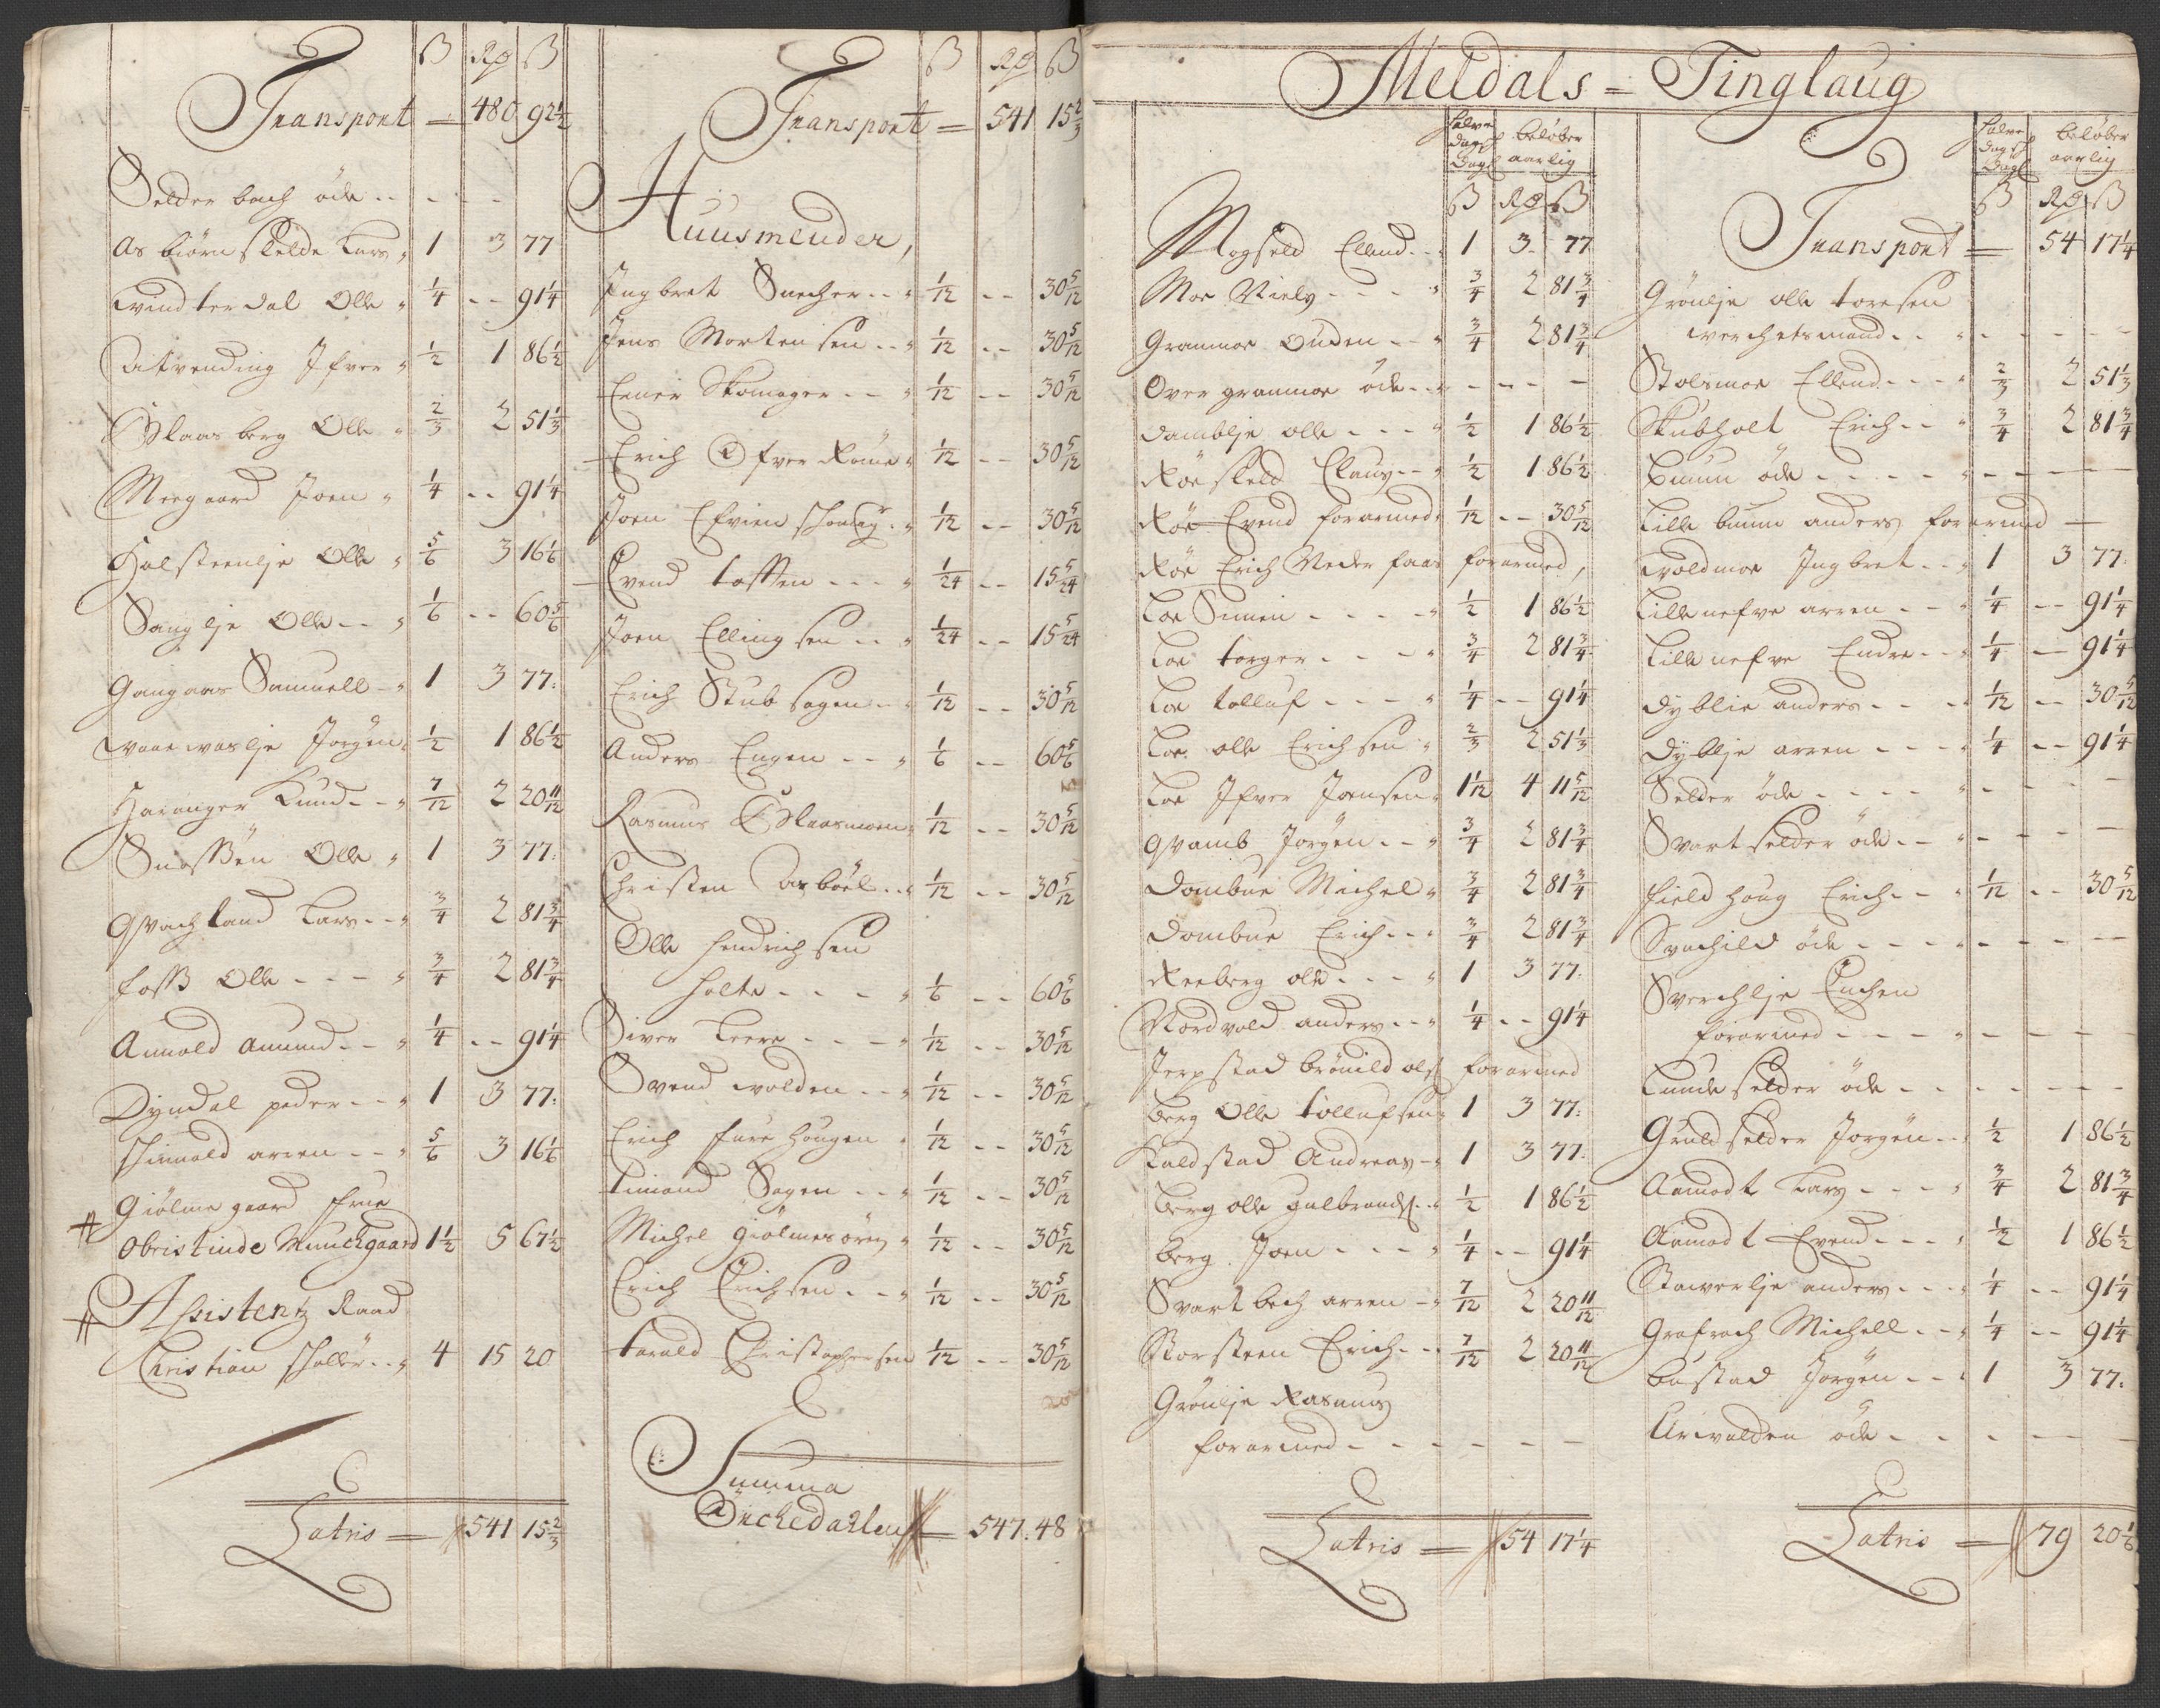 ß Rd ß
Transport = 480 92½
Selder bach öde - - - -
Asbiörnskelde Lars „ 1 3 77
Qvindterdal Olle „ ¼ - - 91¼
Aitvending Ifver „ ½ 1 86½
Klaasberg Olle „ ⅔ 2 51⅓
Moegaard Joen „ ¼ - - 91¼
Holsteenlje Olle „ ⅚ 3 16⅙
Sanglje Olle - - „ ⅙ - - 60⅚
Gangaas Samuell - „ 1 3 77:
Jorgen „ ½ 1 86½
Haranger Knud - - „ 7/12 2 20 11/12
Snoßen Olle „ 1 3 77:
Qvachland Lars - - „ ¾ 2 81¾
Foss Olle - - - „ ¾ 2 81¾
Amund - - „ ¼ - - 91¼
Dyndal peder - - „ 1 3 77:
arren - - „ ⅚ 3 16⅙
Giölme gaard frue
# Obristinde Munchgaard 1½ 5 67½
# Assistentz Raad
Christian Schöller - - „ 4 15 20
Latris = 541 15⅔
ß Rd ß
Transport = 541 15⅔
Huusmender,
Ingbret Snecher - - „ 1/12 - - 30 5/12
Jens Mortensen - - „ 1/12 - - 30 5/12
Ener Skomager - - „ 1/12 - - 30 5/12
Erich Ofver Röme „ 1/12 - - 30 5/12
Joen Efvien „ 1/12 - - 30 5/12
Evend toffsen - - - „ 1/24 - - 15 5/24
Joen Ellingsen - - „ 1/24 - - 15 5/24
Erich Stubsagen - „ 1/12 - - 30 5/12
Anders Engen - - „ ⅙ - - 60⅚
Rasmus Klaasmoen „ 1/12 - - 30 5/12
Christen Asböel - - „ 1/12 - - 30 5/12
Olle Hendrichsen
Holte - - - „ ⅙ - - 60⅚
Siver Leere - - - „ 1/12 - - 30 5/12
Svend volden - - „ 1/12 - - 30 5/12
Erich fure Hougen „ 1/12 - - 30 5/12
Simand Sagen - - „ 1/12 - - 30 5/12
Michel Giölmesören „ 1/12 - - 30 5/12
Erich Erichsen - - „ 1/12 - - 30 5/12
Harald Christophersen 1/12 - - 30 5/12
Summa
Örchedahlen = 547. 48
Meldals = Tinglaug
halve dags dagl beløber aarlig
ß Rd ß
Mogseld Ellend - - 1 3 - 77
Moe Niels - - - „ ¾ 2 81¾
Grannoe Ouden - - „ ¾ 2 81¾
Over grannoe öde - - - - - -
Damblje olle - - - „ ½ 1 86½
Röeskeld Claus - - „ ½ 1 86½
Röe Evend forarmed „ 1/12 - - 30 5/12
Röe Erich Nederfaar forarmed,
Loe Simen - - - - „ ½ 1 86½
Loe torger - - - „ ¾ 2 81¾
Loe tolluf - - - „ ¼ - - 91¼
Loe olle Erichsen „ ⅔ 2 51⅓
Loe Ifver Joensen „ 1 1/12 4 11 5/12
Qvamb Jorgen - - „ ¾ 2 81¾
Dombue Michel „ ¾ 2 81¾
Dombue Erich - - „ ¾ 2 81¾
Reeberg olle - - - „ 1 3 77:
Nordvold anders - - „ ¼ - - 91¼
Jerpstad brönild ols: forarmed
Berg Olle tollufsen „ 1 3 77:
Kaldstad Andreas - „ 1 3 77:
Berg olle gulbrands: - „ ½ 1 86½
Berg Joen - - - „ ¼ - - 91¼
Svartbech arren - „ 7/12 2 20 11/12
Storsteen Erich - - 7/12 2 20 11/12
Grönlje Rasmus
forarmed - - - - - -
Latris = 54 17¼
halve dags dagl beløber aarlig
ß Rd ß
Transport = 54 17¼
Grönlje olle toresen
verchetsmand - - - - - -
Stolsmoe Ellend - - - „ ⅔ 2 51⅓
Skubholt Erich - - „ ¾ 2 81¾
Buuen öde - - - - - - - -
Lille buuen anders forarmed —
Qvoldmoe Ingbret - - „ 1 3 77:
Lillenefve arren - - „ ¼ - - 91¼
Lillenefve Endre - - „ ¼ - - 91¼
Dyblie anders - - „ 1/12 - - 30 5/12
Dyblje arren - - - „ ¼ - - 91¼
Selder öde - - - - - - -
Svartselder öde - - - - - -
Field houg Erich - - „ 1/12 - - 30 5/12
Svehild öde - - - - - - -
Sverchlje Enchen
forarmed - - - - - - -
Lundeselder öde - - - - - -
Gruldselder Jorgen - - „ ½ 1 86½
Aamodt Lars - - - „ ¾ 2 81¾
Aamodt Evend - - - „ ½ 1 86½
Staverlje anders - - - „ ¼ - - 91¼
Grefrach Michell - - „ ¼ - - 91¼
Bastad Jorgen - - „ 1 3 77:
Urvolden öde - - - - -
Latris = 79 20⅙